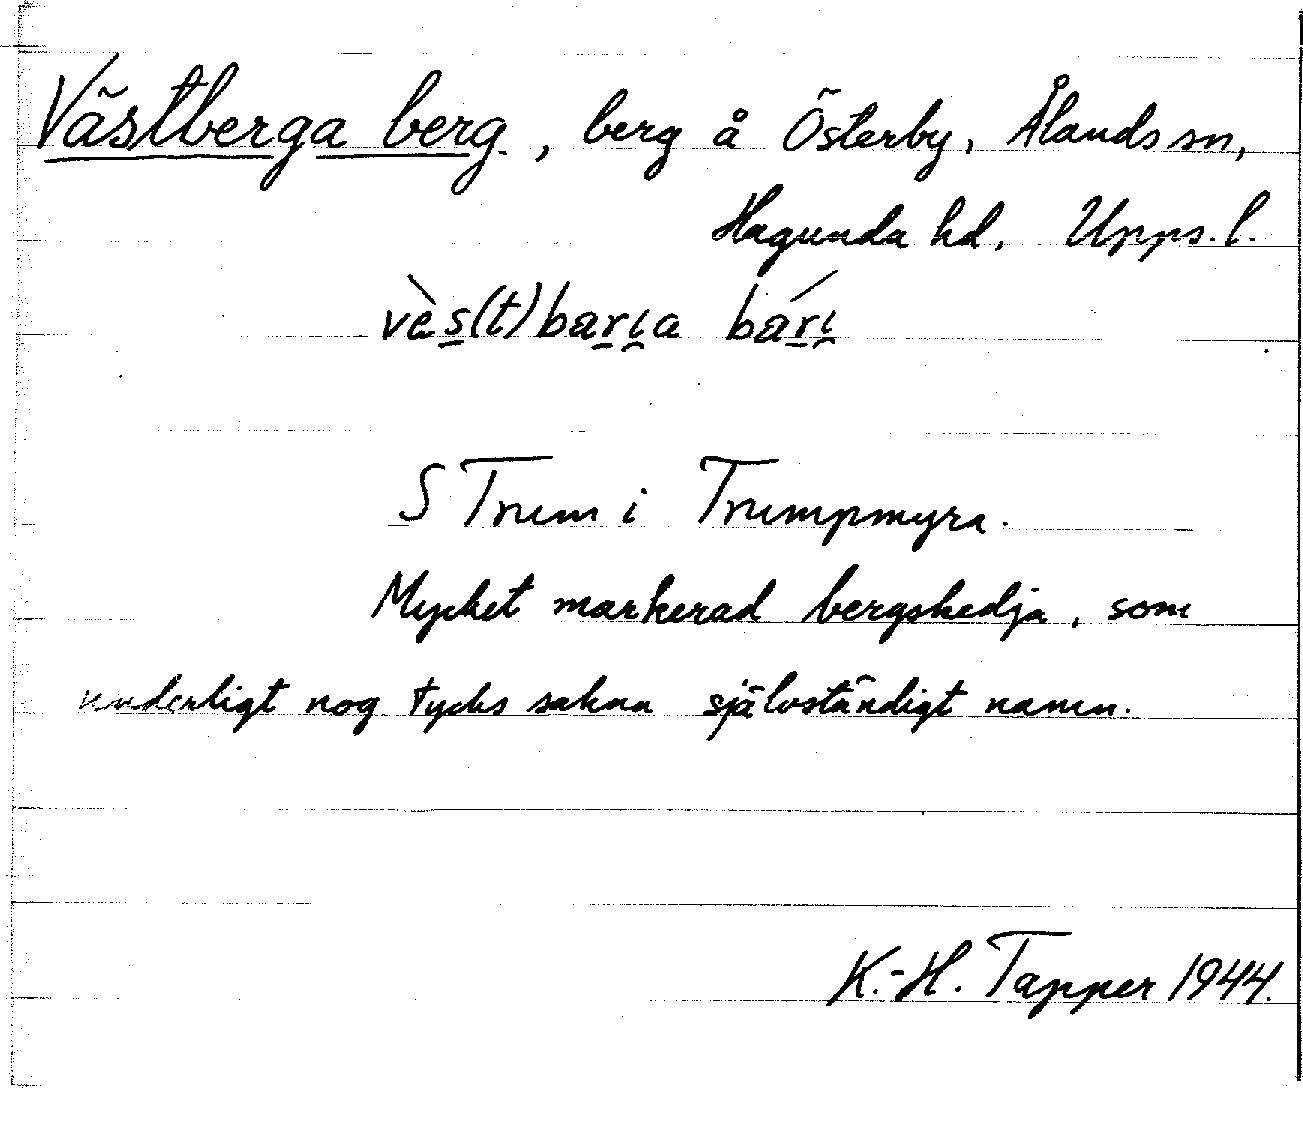 Västberga berg, berg å Österby, Ålands sn,
Hagunda hd, Upps. l.
vès(t)barıa bárı
S Trum i Trumpmyra.
Mycket markerad bergskedja, som
underligt nog tycks sakna självständigt namn.
K.-H. Tapper 1944.